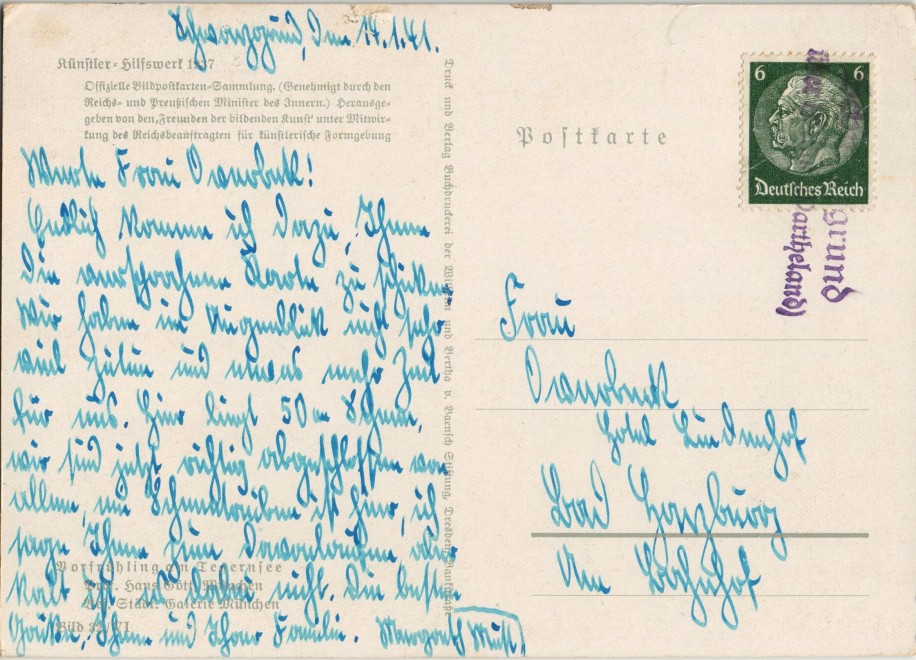 Schwarzgrund, den 17.1.41.
Künstler-Hilfswerk 1937
Offizielle Bildpostkarten-Sammlung. (Genehmigt durch den
Reichs- und Preußischen Minister des Innern.) Herausge-
geben von den „Freunden der bildenden Kunst“ unter Mitwir-
kung des Reichsbeauftragten für künstlerische Formgebung
Werte Frau Overbeck!
Endlich komme ich dazu, Ihnen
die versprochene Karte zu schicken.
Wir haben im Augenblick nicht sehr
viel zutun und etwas mehr Zeit
für uns. Hier liegt 50 cm Schnee,
wir sind jetzt richtig abgeschlossen von
allem, ein Schneetreiben ist hier, ich
sage Ihnen zum Davonlaufen aber
kalt ist es dabei nicht. Die besten
Grüße, Ihnen und Ihrer Familie. Margreth
Vorfrühling am Tegernsee
Prof. Hans Gött, München
Bes. Städt. Galerie München
Bild 32/VI
Druck und Verlag Buchdruckerei der Wilhelm und Bertha v. Baensch Stiftung, Dresden
Postkarte
6 6
Deutsches Reich
grund
(Wartheland)
Frau
Overbeck
Hotel Lindenhof
Bad Harzburg
Am Bahnhof